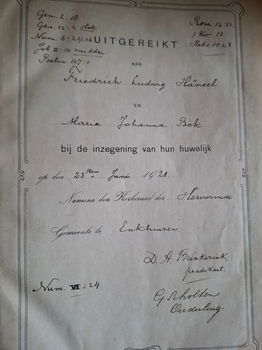 Gen. 2:18.
Gen. 12:2 slot
Num. 6:24-26
Job II:10 midden
Psalm 127:1
Rom 12:12
1 Kor 13
UITGEREIKT
AAN
Friedrich Ludwig Hänsel
EN
Maria Johanna Bok
bij de inzegening van hun huwelijk
op den 23sten Juni 1921.
Namens den Kerkeraad der Hervormde
Gemeente te Enkhuizen
D. A.
predikant.
Num. VI:24.
Ouderling.